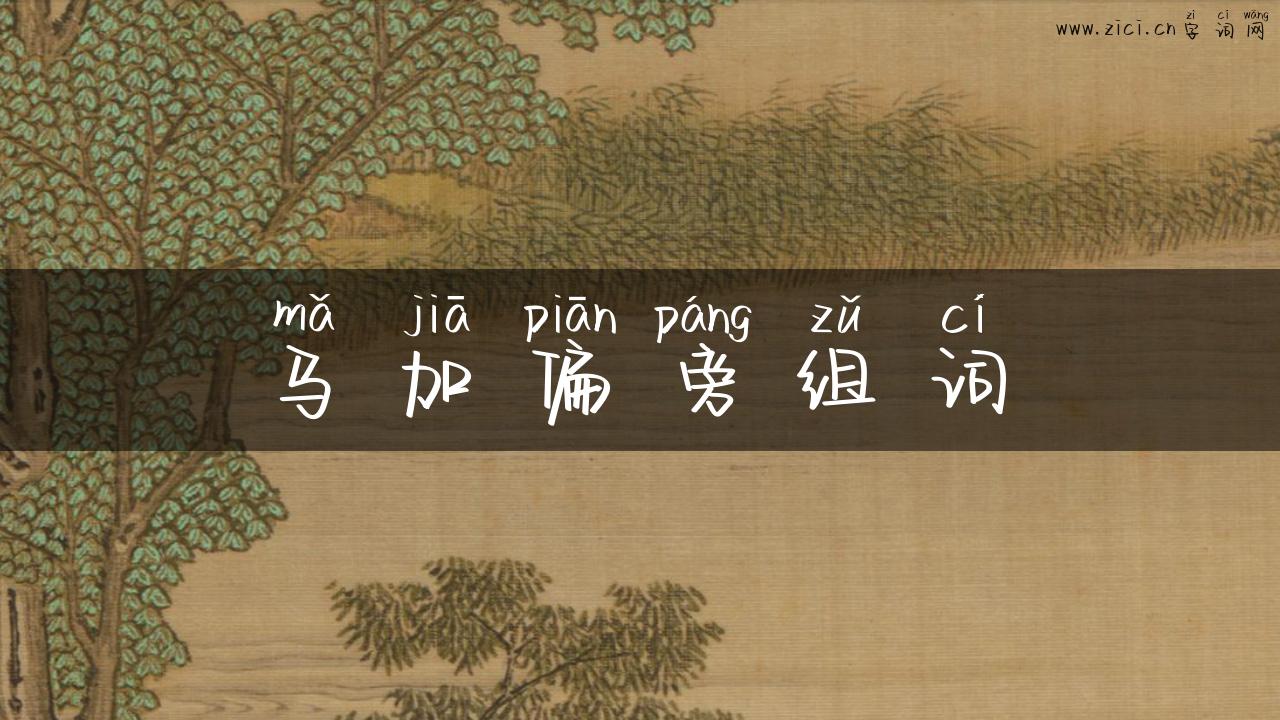 zì cí wǎng
www.zici.cn字词网
mǎ jiā piān páng zǔ cí
马加偏旁组词